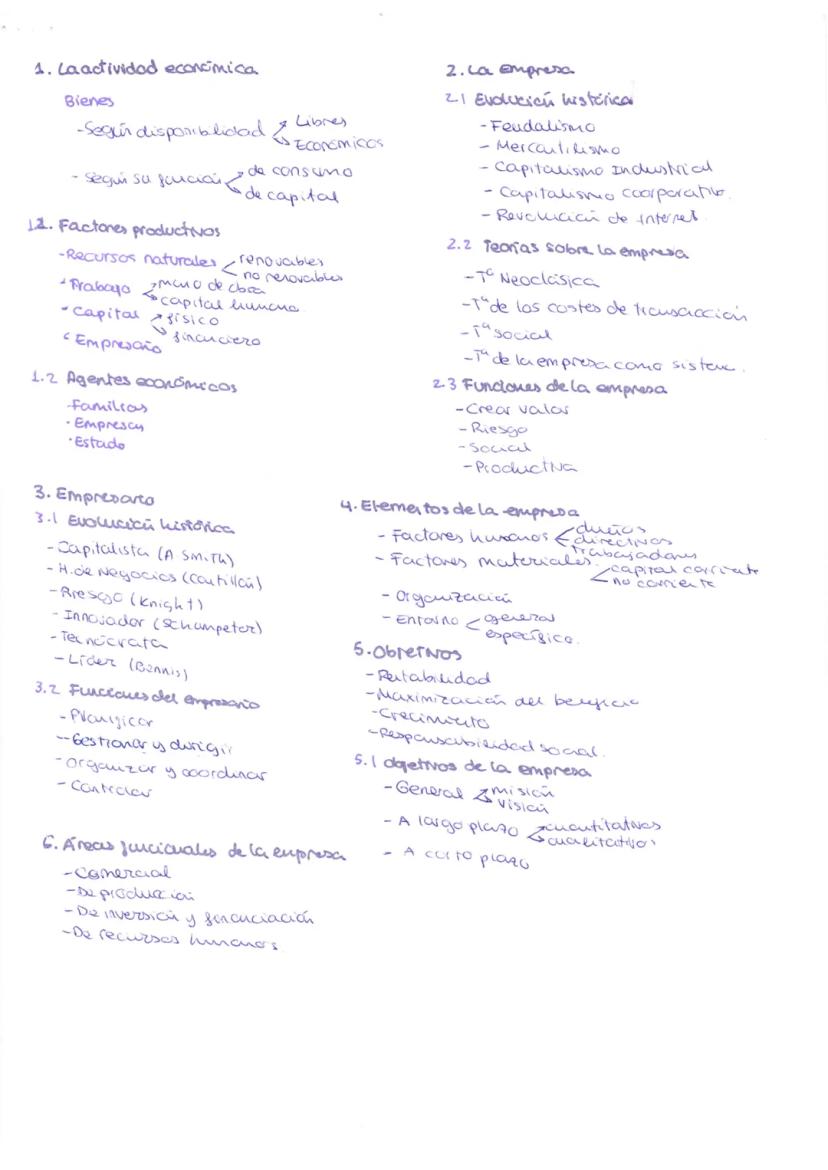 1. La actividad económica
Bienes
- Según disponibilidad
Libres
Económicos
- Según su función
de consumo
de capital
1.1. Factores productivos
- Recursos naturales
renovables
no renovables
- Trabajo
mano de obra
capital humano
- Capital
físico
financiero
- Empresario
1.2 Agentes económicos
- Familias
- Empresas
- Estado
2. La Empresa
2.1 Evolución histórica
- Feudalismo
- Mercantilismo
- Capitalismo Industrial
- Capitalismo coorporativo.
- Revolución de internet.
2.2 Teorías sobre la empresa
- Tª Neoclásica
- Tª de los costes de transacción
- Tª social
- Tª de la empresa como sistema.
2.3 Funciones de la empresa
- Crear valor
- Riesgo
- Social
- Productiva
3. Empresario
3.1 Evolución histórica
- Capitalista (A Smith)
- H. de Negocios (Cantillón)
- Riesgo (Knight)
- Innovador (Schumpeter)
- Tecnócrata
- Líder (Bennis)
3.2 Funciones del empresario
- Planificar
- Gestionar y dirigir
- Organizar y coordinar
- Controlar
4. Elementos de la empresa
- Factores humanos
dueños
directivos
trabajadores
- Factores materiales.
capital corriente
no corriente
- Organización
- Entorno
general
específico.
5. Objetivos
- Rentabilidad
- Maximización del beneficio
- Crecimiento
- Responsabilidad social.
5.1 objetivos de la empresa
- General
misión
visión
- A largo plazo
cuantitativos
cualitativos
- A corto plazo
6. Áreas funcionales de la empresa
- Comercial
- De producción
- De inversión y financiación
- De recursos humanos.